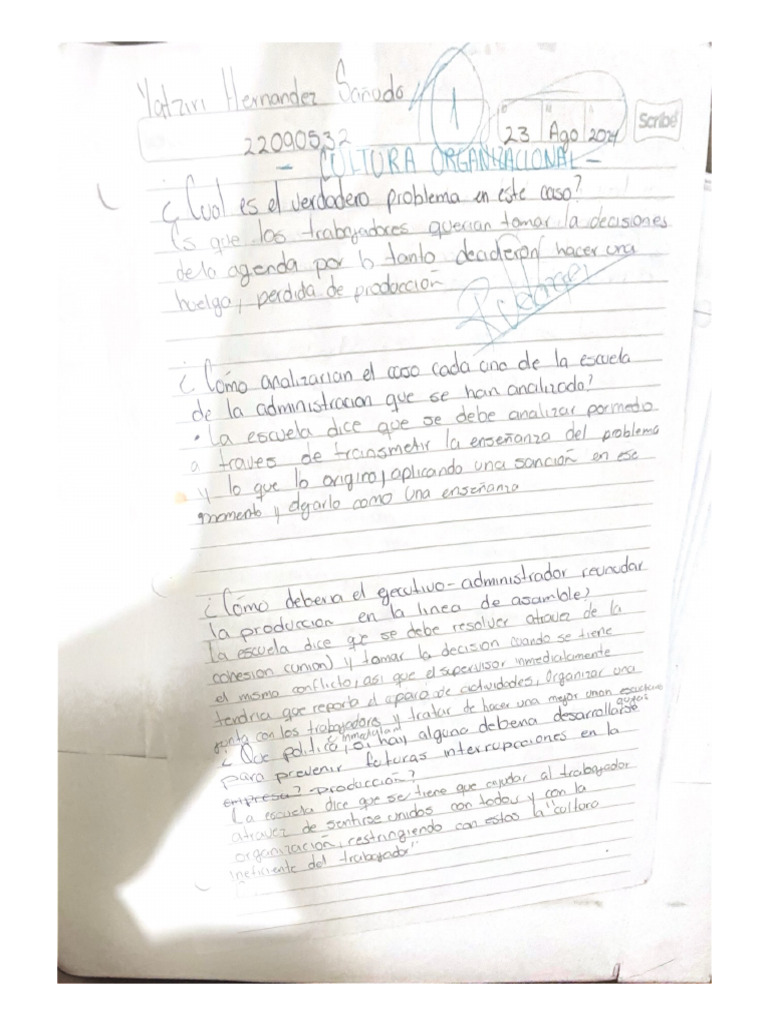 Yatziri Hernandez Sañudo
1
23 Ago 2024
Scribe
22090532
- CULTURA ORGANIZACIONAL -
¿Cual es el verdadero problema en este caso?
Es que los trabajadores querian tomar la decisiones
de la agenda por lo tanto decidieron hacer una
huelga, perdida de producción
¿Cómo analizarian el caso cada una de la escuela
de la administracion que se han analizado?
• La escuela dice que se debe analizar por medio
a traves de transmetir la enseñanza del problema
y lo que lo origino, aplicando una sanción en ese
momento y dejarlo como una enseñanza
¿Cómo deberia el ejecutivo-administrador reunudar
la produccion en la linea de asamble?
La escuela dice que se debe resolver atravez de la
cohesion (union) y tomar la decision cuando se tiene
el mismo conflicto, asi que el supervisor inmediatamente
tendria que reporta el aparo de actividades, Organizar una
junta con los trabajadores y tratar de hacer una mejor union escuchar
quejas
¿Que politica, si hay alguna deberia desarrollarse
para prevenir futuras interrupciones en la
empresa? produccion?
La escuela dice que se tiene que ayudar al trabajador
atravez de sentirse unidos con todos y con la
organización, restringiendo con estos la "cultura
ineficiente del trabajador"